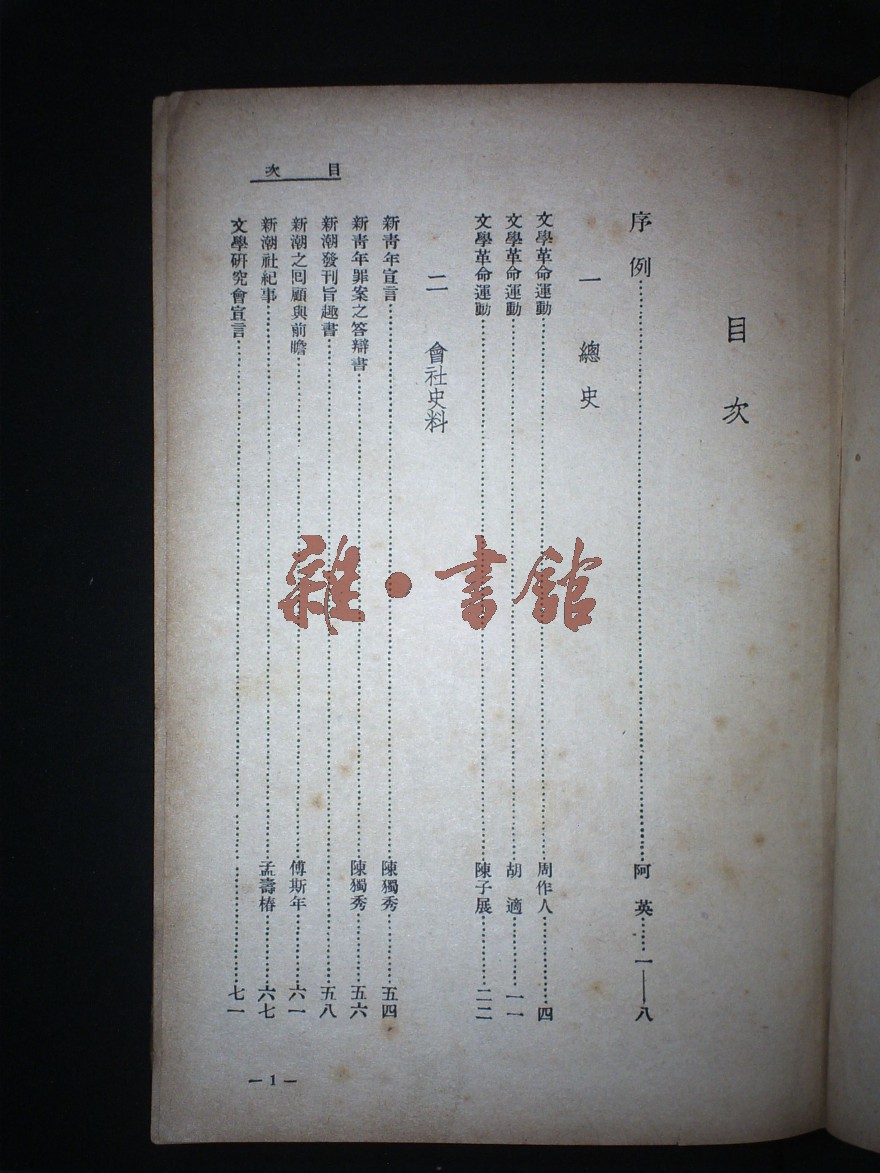 目次
目次
序例……阿英……一——八
一 總史
文學革命運動……周作人……四
文學革命運動……胡適……一一
文學革命運動……陳子展……二二
二 會社史料
新青年宣言……陳獨秀……五四
新青年罪案之答辯書……陳獨秀……五六
新潮發刊旨趣書……五八
新潮之回顧與前瞻……傅斯年……六一
新潮社紀事……孟壽椿……六七
文學研究會宣言……七一
—1—
雜•書館